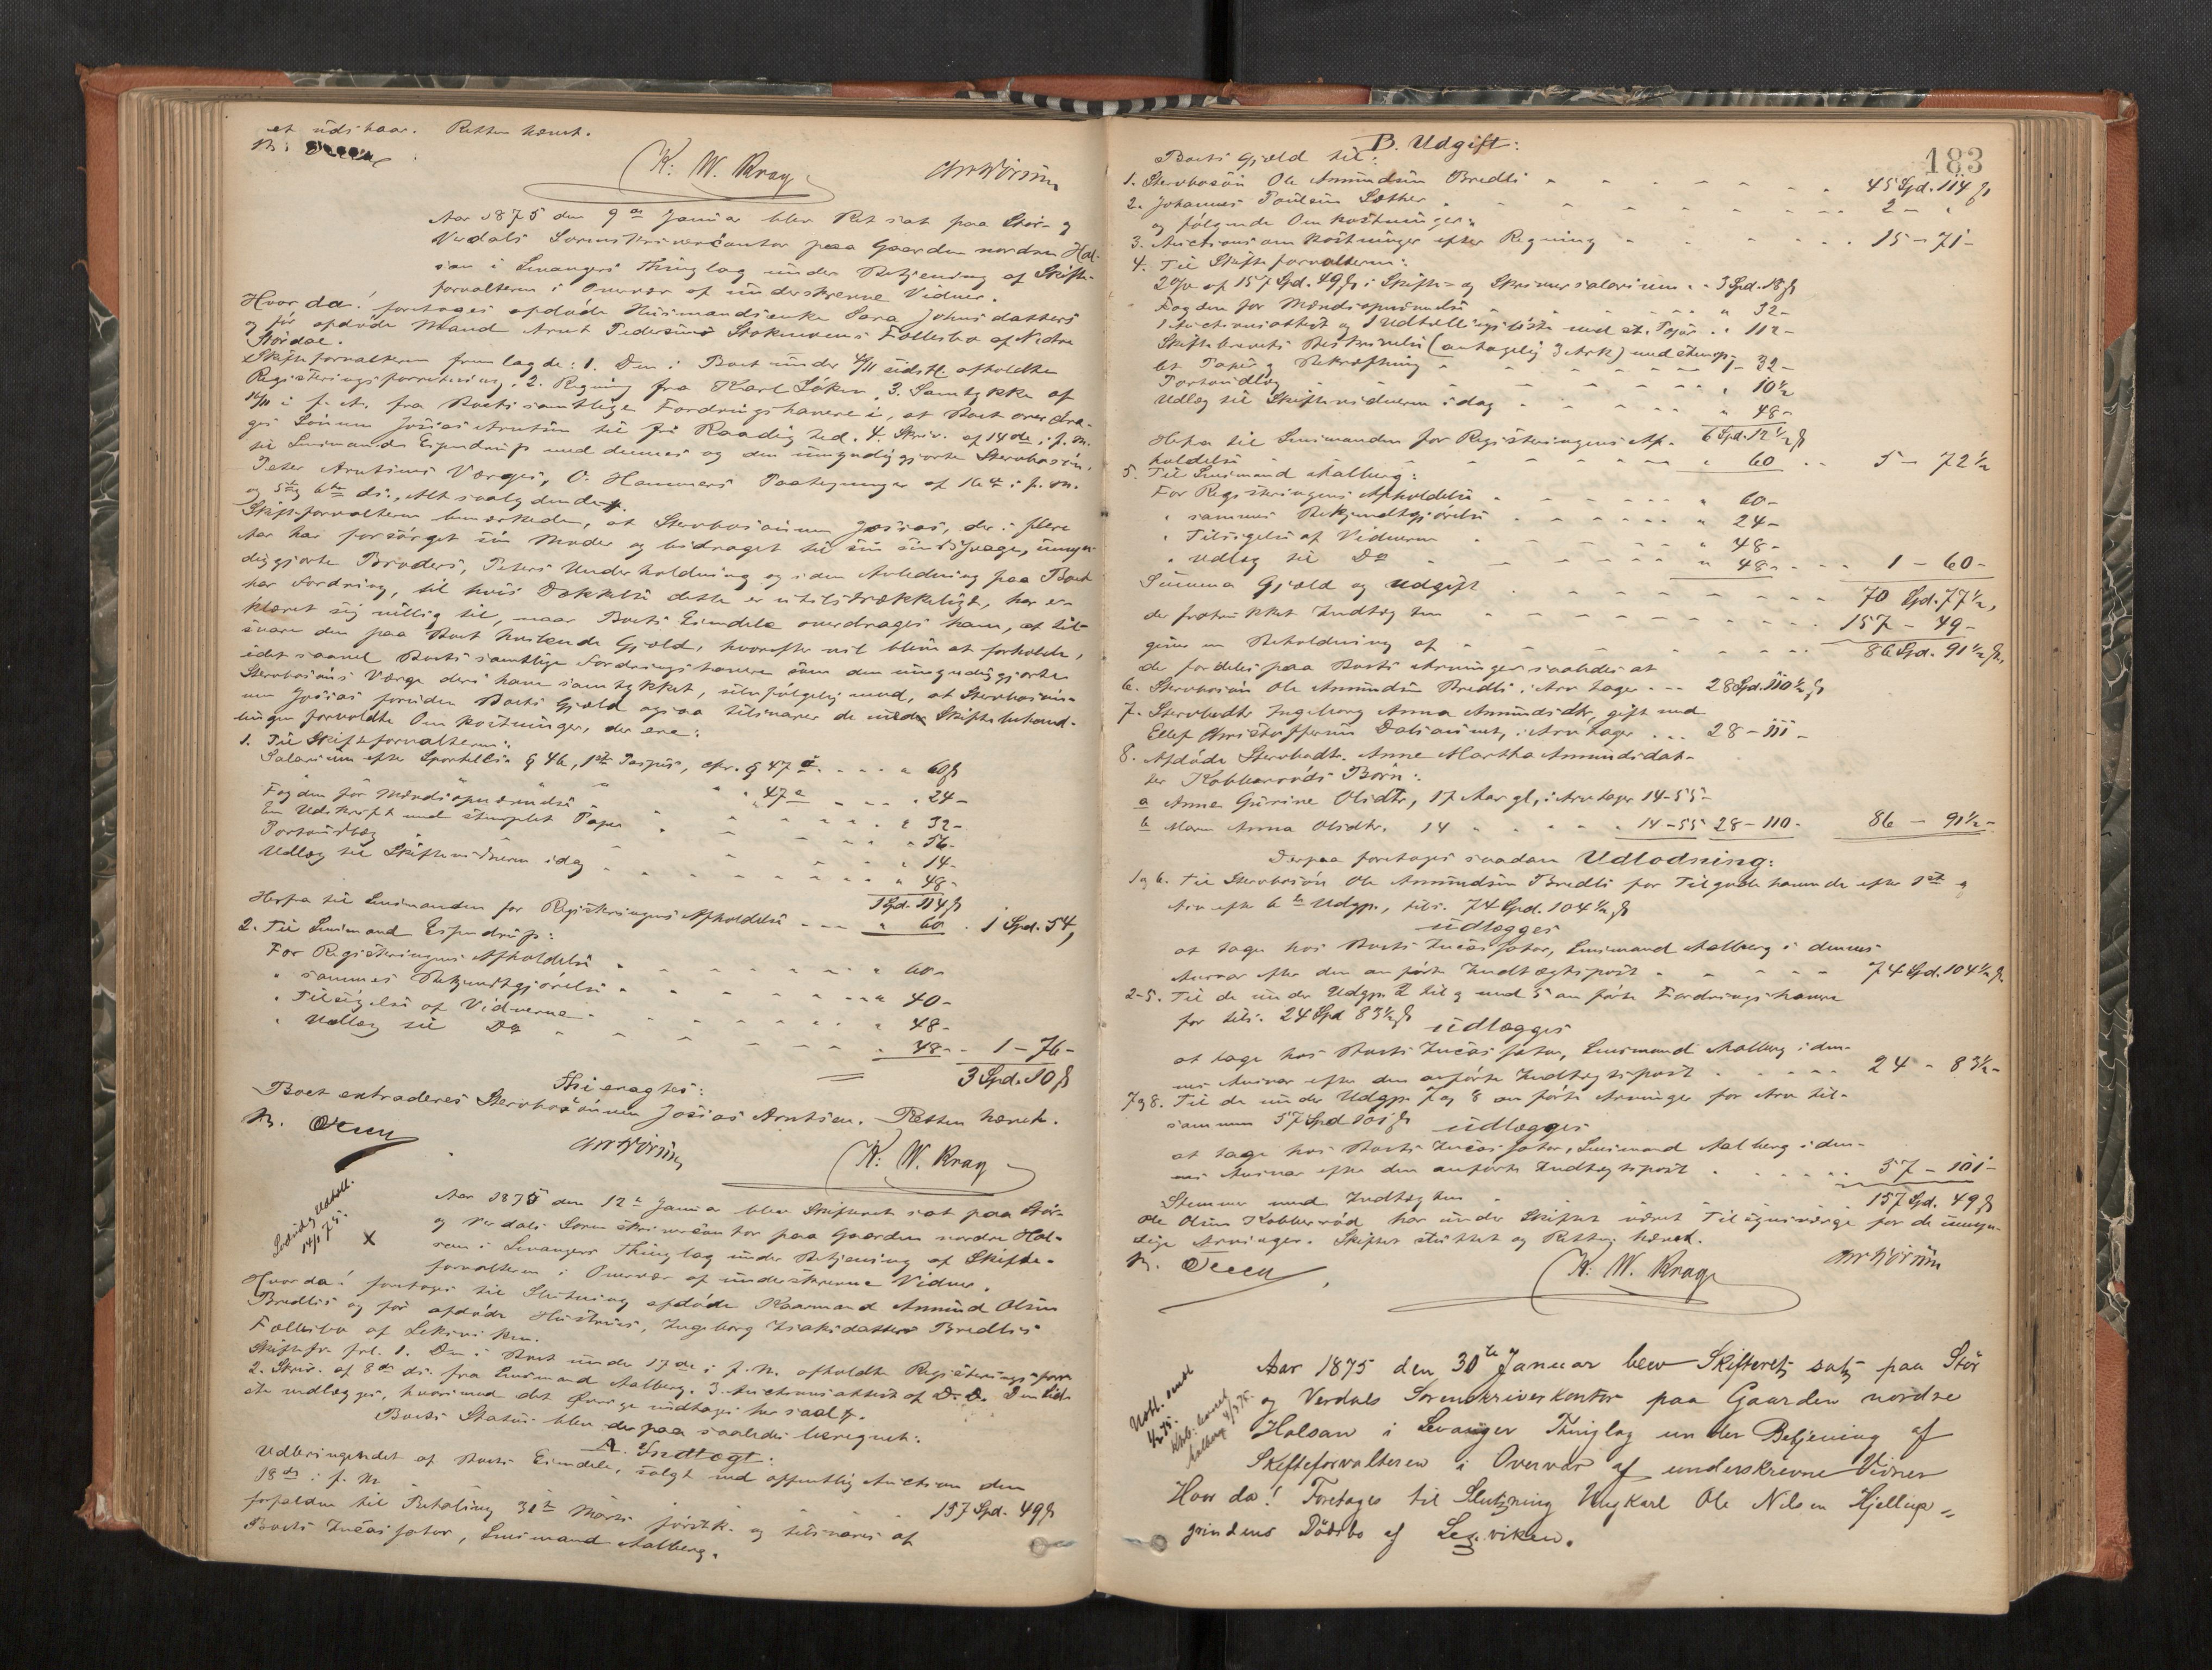 et udstaar. Retten hævet.
K. W. Krag
Aar 1875 den 9de Januar blev Ret sat paa Stør- og
Værdals Sorenskrivercontor paa Gaarden nordre Hal-
san i Levangers Thinglag under Betjening af Skifte-
forvalteren i Overvær af underskrevne Vidner.
Hvor da! foretages afdøde Huusmandsenke Sara Johnsdatters
og før afdøde Mand Arnt Pedersens Stokmoens Fællesbo af Nedre
Størdal.
Skifteforvalteren fremlagde: 1. Den i Boet under 4/11 sidstl. afholdte
Registreringsforretning, 2. Regning fra Karl Løken, 3. Samtykke af
16/11 i f. A. fra Boets samtlige Fordringshavere i, at Boet overdra-
ges Sønnen Josias Arntsen til fri Raadighed. 4. Skriv. af 14de i f. M.
til Lensmanden Espendrup med dennes og den umyndiggjorte Stervbosøn,
Peter Arntsens Værges, O. Hammers Paategninger af 16de i f. M.
og 5te og 6te ds., Alt saalydende #.
Skifteforvalteren bemærkede, at Stervbosønnen Josias, der i flere
Aar har forsørget sin Moder og bidraget til sin sindssvage, umyn-
diggjorte Broders, Peters Underholdning og i den Anledning paa Boet
har Fordring, til hvis Dækkelse dette er utilstrækkeligt, har er-
klæret sig villig til, naar Boets Eiendele overdrages ham, at til-
svare den paa Boet hvilende Gjæld, hvorefter vil blive at forholde,
idet saavel Boets samtlige Fordringshavere som den umyndiggjorte
Stervbosøns Værge deri have samtykket, selvfølgelig mod, at Stervbosøn-
nen Josias foruden Boets Gjæld ogsaa tilsvarer de ved Skiftebehand-
lingen forvoldte Omkostninger, der ere:
1. Til Skifteforvalteren:
Salarium efter Sportell. § 46, 1ste Passus, cfr. § 47 . . . " 60 ß
Fogden for Mandsopnævnelse " 47 a . . . " 24 -
En Udskrift med stemplet Papir " 32 -
Portoudlæg " 14 -
Udlæg til Skiftevidnerne idag " 48 -
1 Spd. 114 ß
Herfra til Lensmanden for Registreringens Afholdelse " 60 . 1 Spd. 54,
2. Til Lensmand Espendrup:
For Registreringens Afholdelse " 60 -
" sammes Bekjendtgjørelse " 40 -
" Tilsigelse af Vidnerne " 48 -
" Udlæg til Do " 48 - - 1 - 76 -
3 Spd. 10 ß
Thi eragtes:
Boet extraderes Stervbosønnen Josias Arntsen. - Retten hævet.
K. W. Krag
14/1 75.
X
Aar 1875 den 12te Januar blev Skifteret sat paa Stør-
og Værdals Sorenskrivercontor paa Gaarden nordre Hal-
san i Levangers Thinglag under Betjening af Skifte-
forvalteren i Overvær af underskrevne Vidner.
Hvor da! foretages til Slutning afdøde Kaarmand Anmund Olsen
Bredlis og før afdøde Hustrues, Ingeborg Isaksdatters Bredlis
Fællesbo af Leksviken.
Skiftefv. frl. 1. Den i Boet under 17de i f. M. afholdte Registreringsforr.
2. Skriv. af 8de ds. fra Lensmand Aalberg. 3. Auctionsattest af D. D. Den sid-
ste vedlægges, hvorimod det Øvrige indtages her saal. #.
Boets Status blev derpaa saaledes beregnet:
A. Indtægt:
Udbringendet af Boets Eiendele, solgt ved offentlig Auction den
18de i f. M.
forfalden til Betaling 31te Marts førstk. og tilsvares af
157 Spd. 49 ß
Boets Incassator, Lensmand Aalberg.
183
B. Udgift:
Boets Gjæld til:
1. Stervbosøn Ole Anmundsen Bredli 45 Spd. 114 ß
2. Johannes Paulsen Sæther 2 - "
og følgende Omkostninger:
3. Auctionsomkostninger efter Regning 15 - 71 -
4. Til Skifteforvalteren:
2 % af 157 Spd. 49 ß i Skifte- og Skriversalarium . . 3 Spd. 18 ß
Fogden for Mandsopnævnelse " 32 -
1 Auctionsattest og 1 Udtællingsliste med st. Papir . . 112 -
Skiftebrevets Beskrivelse (antagelig 3 Ark) med stemp-
let Papir og Bekræftning 1 - 32 -
Portoudlæg " 10 ½
Udlæg til Skiftevidnerne idag " 48 -
6 Spd. 12 ½ ß
Herfra til Lensmanden for Registreringens Af-
holdelse " 60 . . 5 - 72 ½
5. Til Lensmand Aalberg:
For Registreringens Afholdelse " 60 -
" sammes Bekjendtgjørelse " 24 -
" Tilsigelse af Vidnerne " 48 -
" Udlæg til Do " 48 - . . . 1 - 60 -
Summa Gjæld og Udgift 70 Spd. 77 ½,
der fratrukket Indtægten 157 - 49 -
giver en Beholdning af 86 Spd. 91 ½ ß,
der fordeles paa Boets Arvinger saaledes at
6. Stervbosøn Ole Anmundsen Bredli i Arv tager . . . 28 Spd. 110 ½ ß
7. Stervbodtr. Ingeborg Anna Anmundsdtr, gift med
Ellef Christoffersen Dalsaunet, i Arv tager . . . 28 - 111 -
8. Afdøde Stervbodtr. Anne Martha Anmundsdat-
ter Kobberrøds Børn:
a Anne Gurine Olsdtr, 17 Aar gl., i Arv tager 14 - 55 -
b Maren Anna Olsdtr. 14 " " " " 14 - 55 28 - 110 - 86 - 91 ½ -
Derpaa foretages saadan Udlodning:
1 og 6. Til Stervbosøn Ole Anmundsen Bredli for Tilgodehavende efter 1ste og
Arv efter 6te Udgp., tils. 74 Spd. 104 ½ ß
udlægges
at tage hos Boets Incassator, Lensmand Aalberg i dennes
Ansvar efter den anførte Indtægtspost 74 Spd. 104 ½ ß.
2-5. Til de under Udgp. 2 til og med 5 anførte Fordringshavere
for tils. 24 Spd 83 ½ ß
udlægges
at tage hos Boets Incassator, Lensmand Aalberg i den-
nes Ansvar efter den anførte Indtægtspost 24 - 83 ½ -
7 og 8. Til de under Udgp. 7 og 8 anførte Arvinger for Arv til-
sammen 57 Spd 101 ß
udlægges
at tage hos Boets Incassator, Lensmand Aalberg i den-
nes Ansvar efter den anførte Indtægtspost 57 - 101 -
Stemmer med Indtægten 157 Spd. 49 ß
Ole Olsen Kobberrød har under Skiftet været Tilsynsværge for de umyn-
dige Arvinger. Skiftet sluttet og Retten hævet.
K. W. Krag
Aar 1875 den 30te Januar blev Skifteret sat paa Stør
og Verdals Sorenskriverkontor paa Gaarden nordre
Halsan i Levanger Thinglag under Betjening af
Skifteforvalteren i Overvær af underskrevne Vidner
Hvor da! Foretages til Slutning Ungkarl Ole Nilsen Hjellup-
grindens Dødsbo af Lexviken.